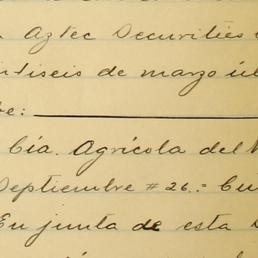 Aztec Securities
de marzo
Cía. Agrícola del
Septiembre # 26.=
En junta de esta